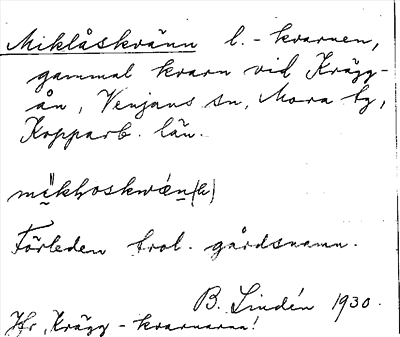 Miklåskvänn l. -kvarnen,
gammal kvarn vid Krägg-
ån, Venjans sn, Mora tg,
Kopparb. län.
Förleden trol. gårdsnamn.
B. Lindén 1930.
Jfr „Krägg-kvarnarna!